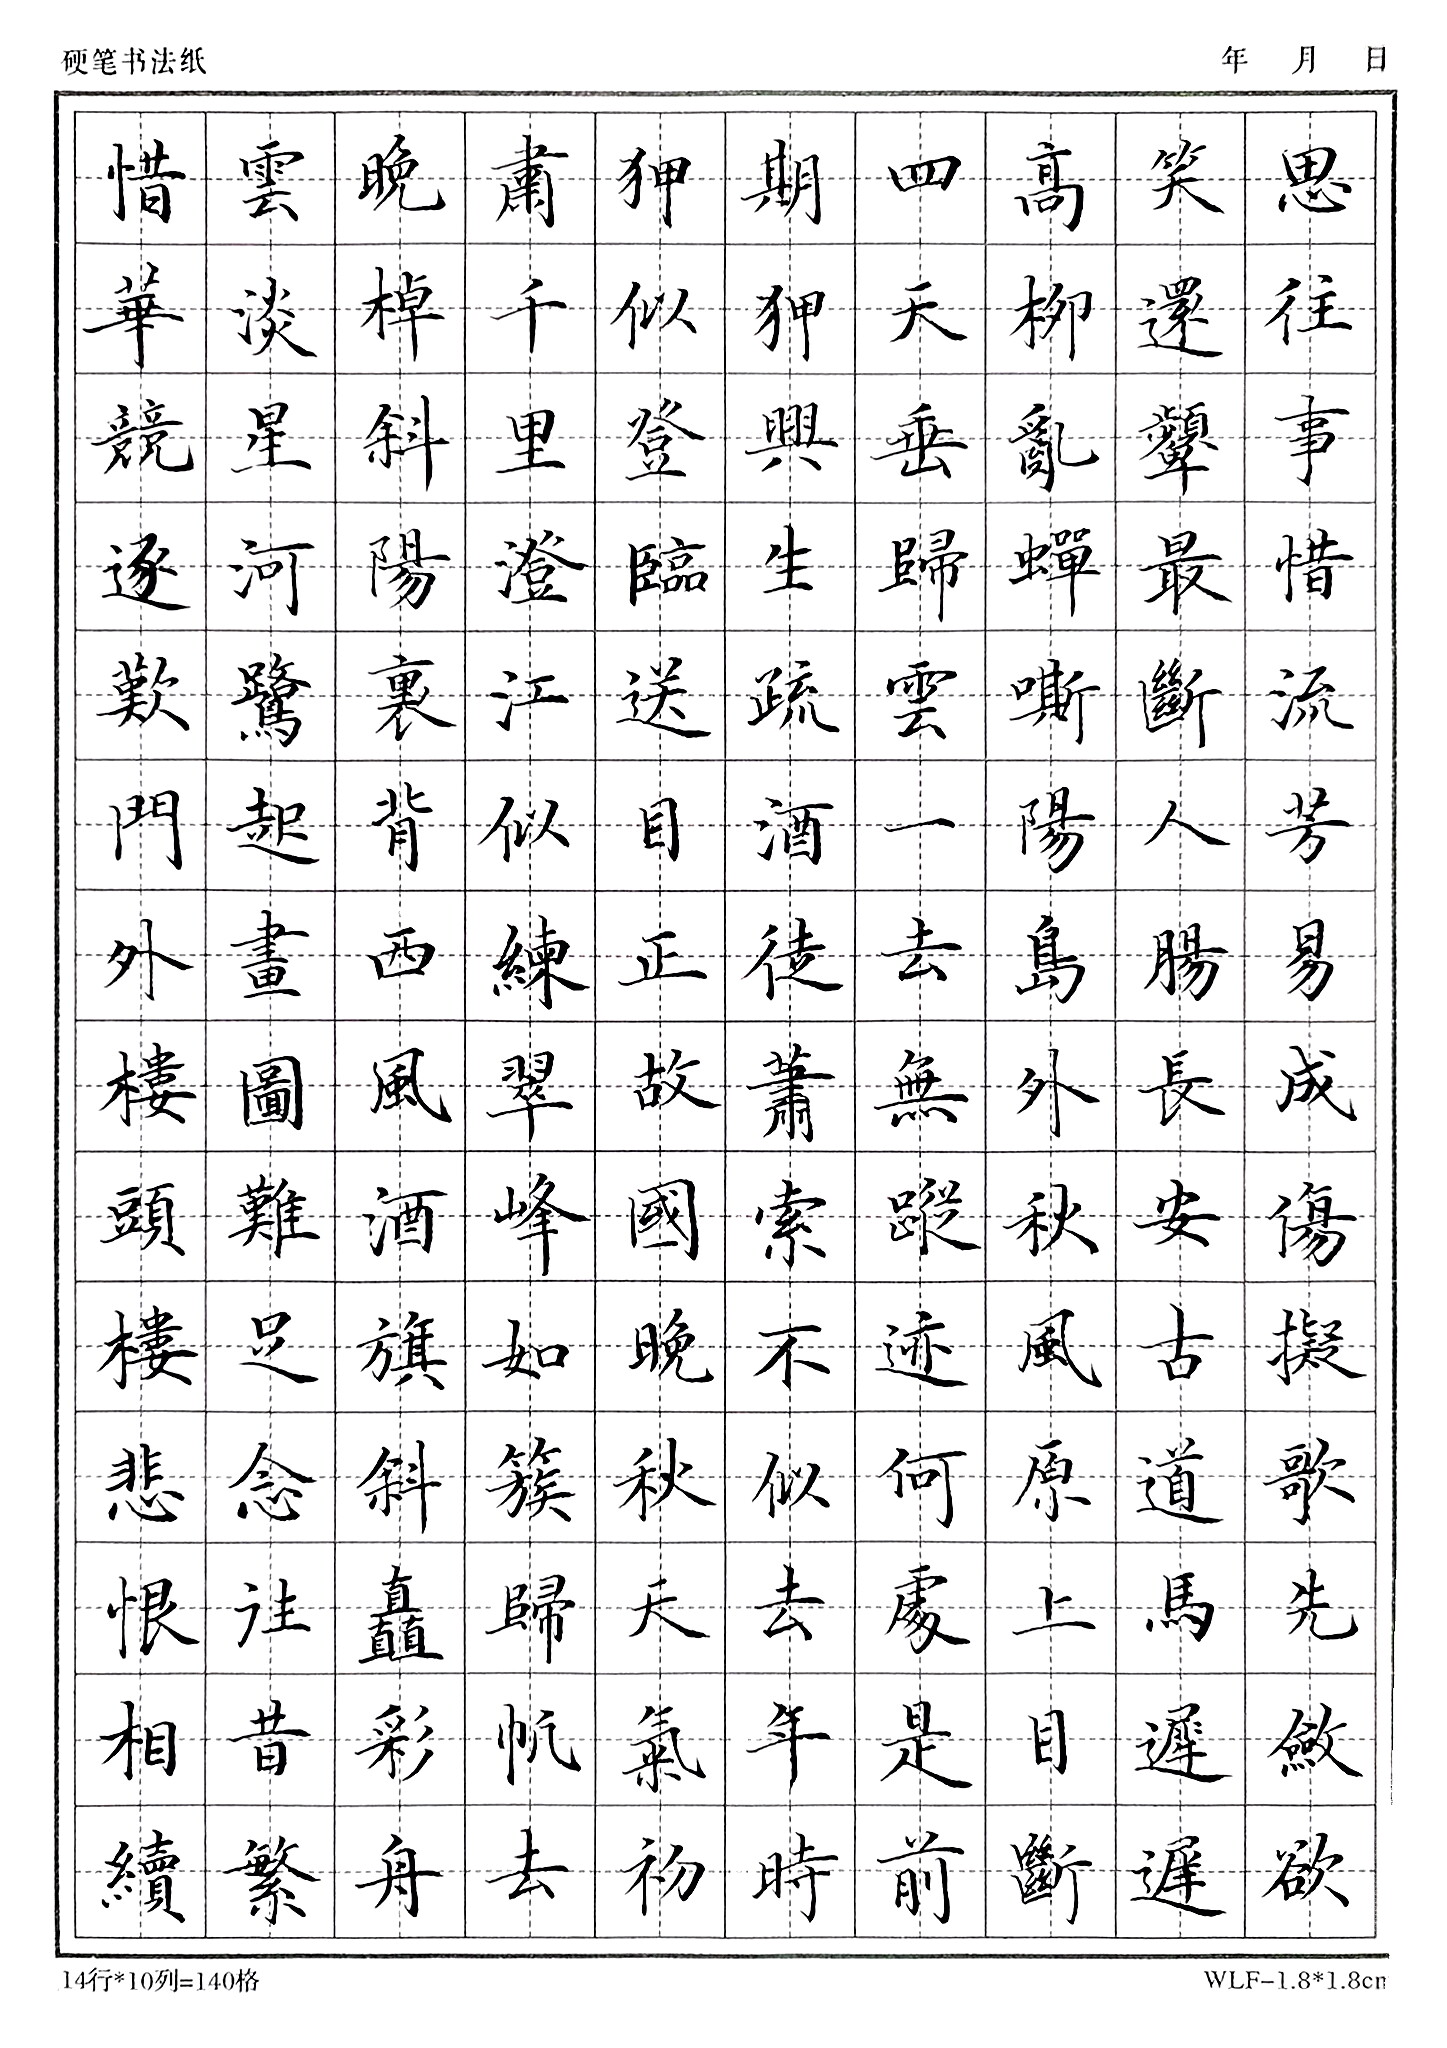 硬笔书法纸
年 月 日
思往事惜流芳易成傷擬歌先斂欲
笑還顰最斷人腸長安古道馬遲遲
高柳亂蟬嘶陽島外秋風原上目斷
四天垂歸雲一去無蹤迹何處是前
期狎興生疏酒徒蕭索不似去年時
狎似登臨送目正故國晚秋天氣初
肅千里澄江似練翠峰如簇歸帆去
晚棹斜陽裏背西風酒旗斜矗彩舟
雲淡星河鷺起畫圖難足念往昔繁
惜華競逐歎門外樓頭樓悲恨相續
14行*10列=140格
WLF-1.8*1.8cm